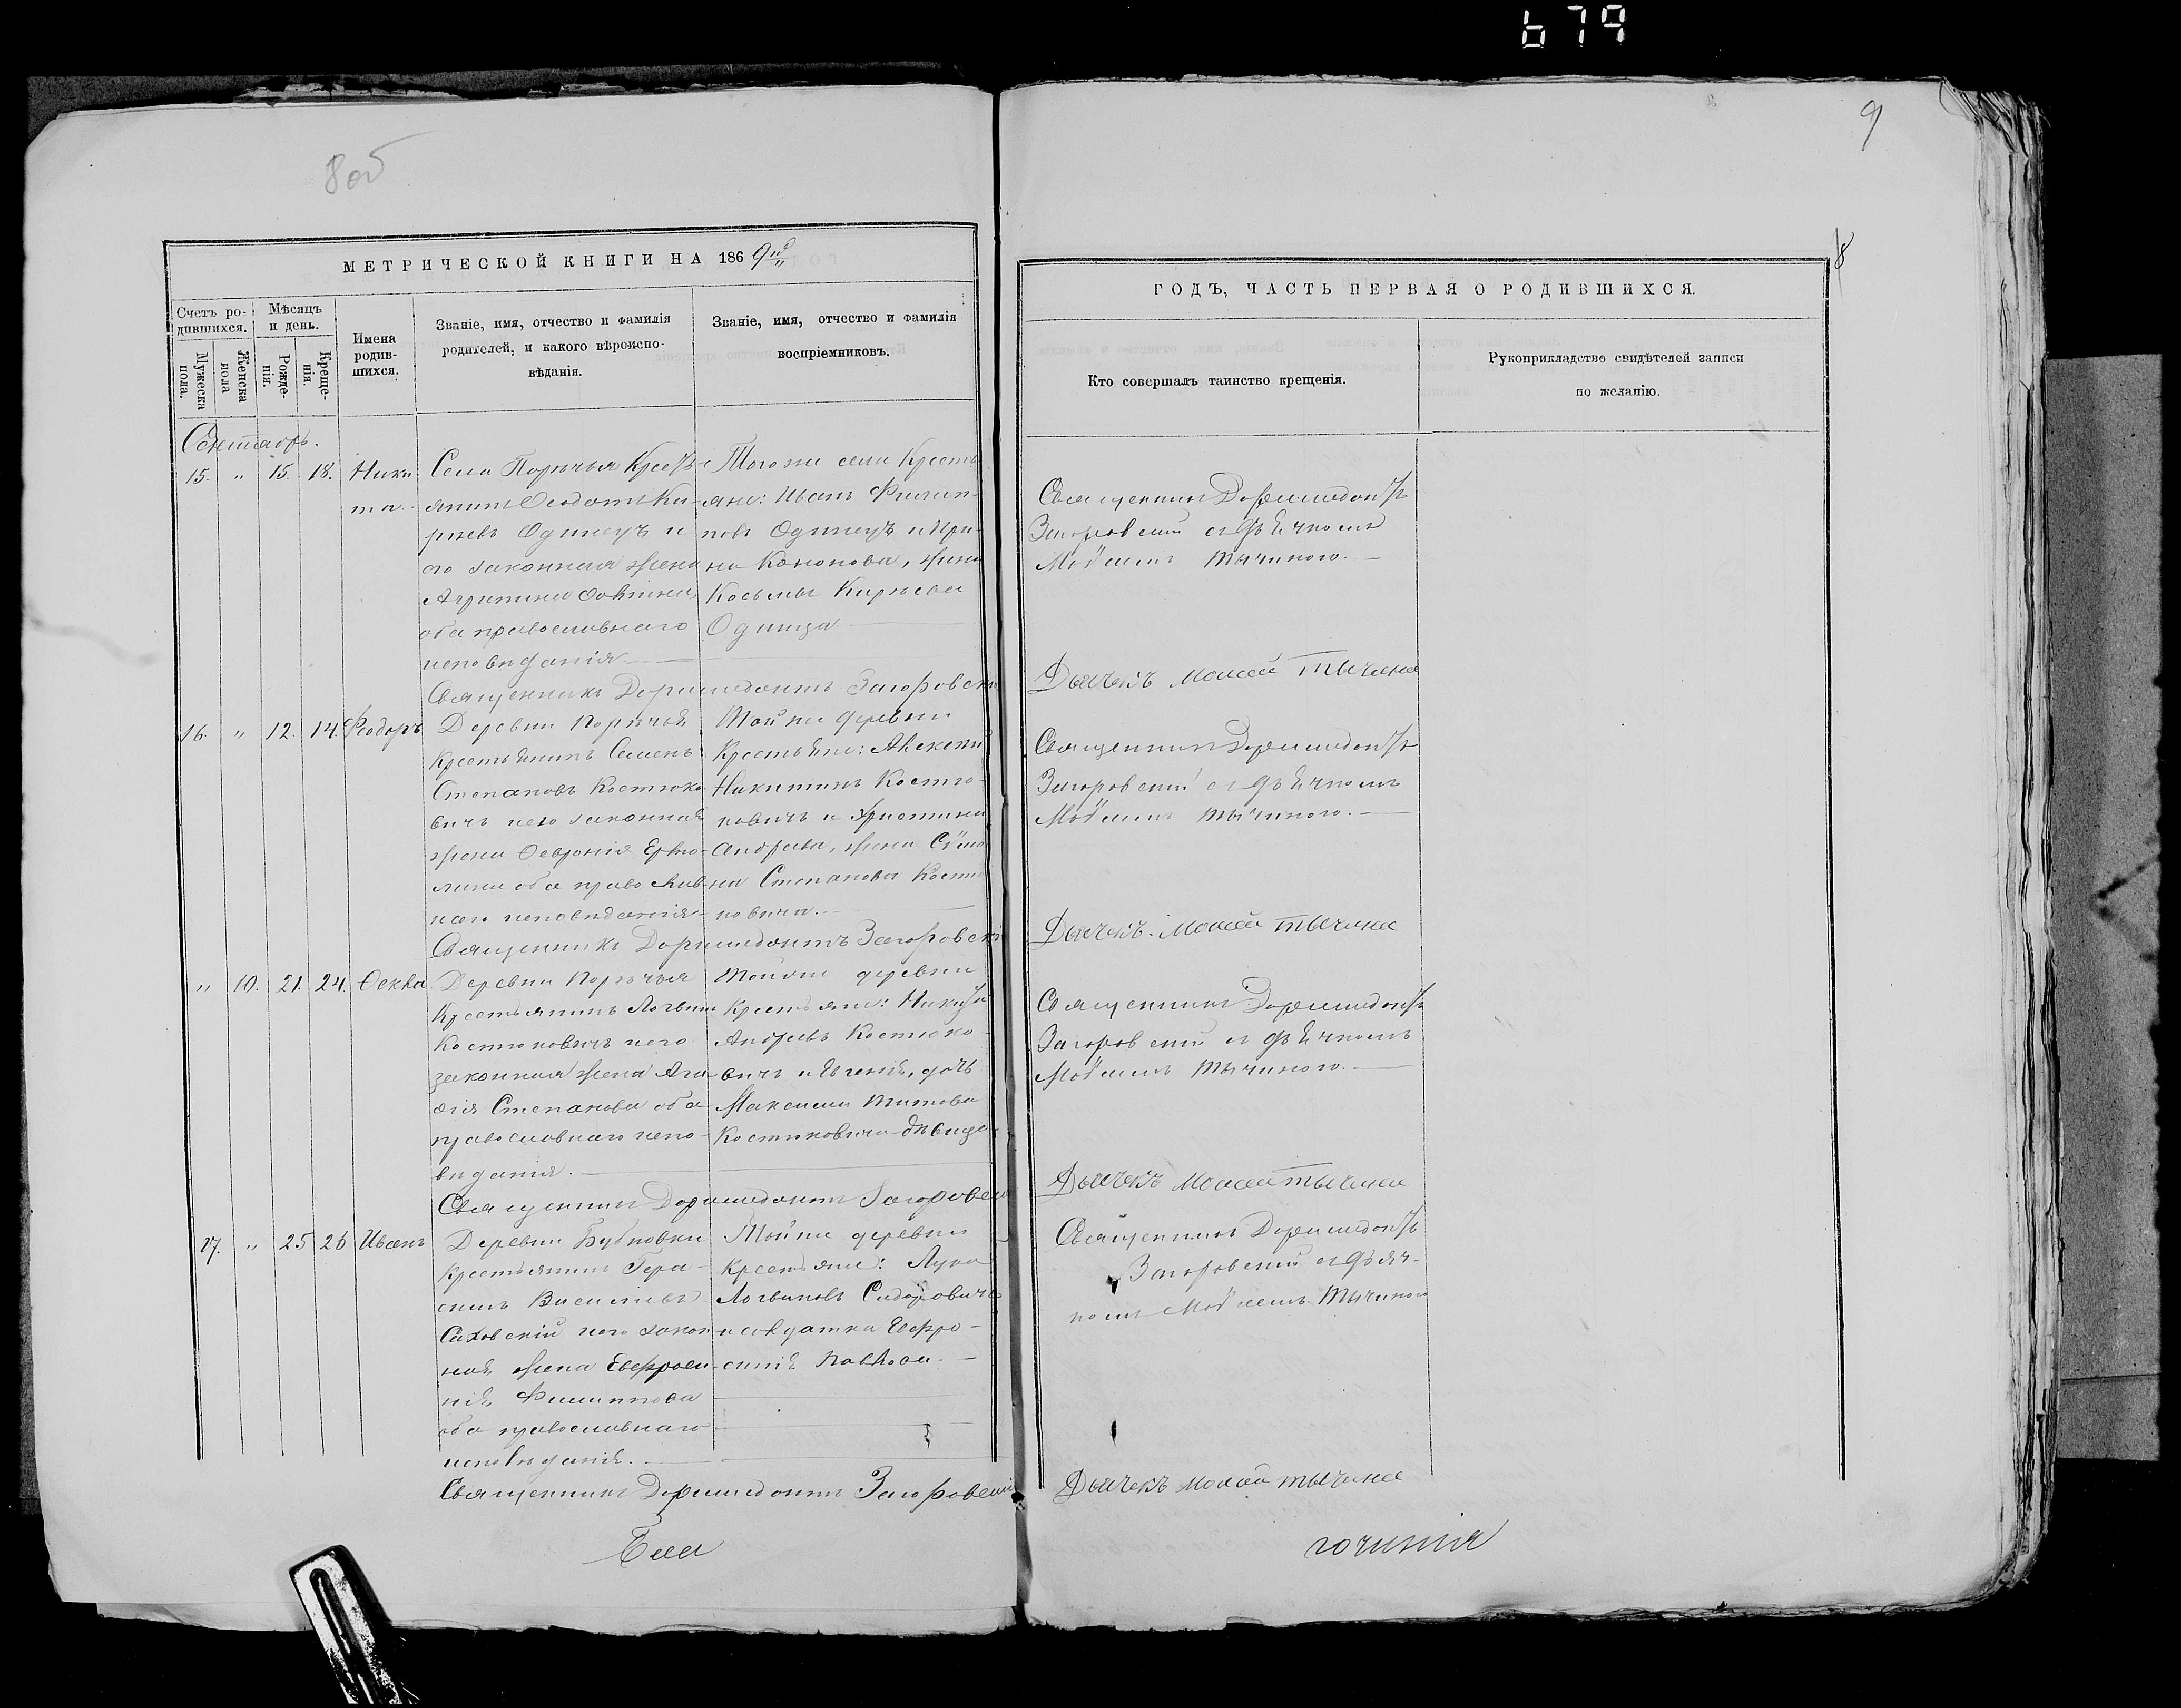 679
8 об
9
8
МЕТРИЧЕСКОЙ КНИГИ НА 1869й
ГОДЪ, ЧАСТЬ ПЕРВАЯ О РОДИВШИХСЯ.
Счетъ ро-
дившихся.
Мужеска
пола.
Женска
пола
Мѣсяцъ
и день.
Рожде-
нія.
Креще-
нія.
Имена
родив-
шихся.
Званіе, имя, отчество и фамилія
родителей, и какого вѣроиспо-
вѣданія.
Званіе, имя, отчество и фамилія
воспріемниковъ.
Кто совершалъ таинство крещенія.
Рукоприкладство свидѣтелей записи
по желанію.
Сентябрь.
15. " 15. 18. Ники
та.
Села Порѣчья Кресть
янинъ Ѳеодотъ Ки-
рѣевъ Одинецъ и
его законная жена
оба православнаго
исповѣданія
Тогоже села Кресть
яне: Иванъ Филип-
повъ Одинецъ и Ири-
на Кононова, жена
Косьмы Кирѣева
Одинца
Священникъ Доримедонтъ
Загоровскій съ дьячкомъ
Моѵсеемъ Тычиною.
Священникъ Доримедонтъ Загоровскій
Дьячекъ Моисей Тычина
16. " 12. 14. Ѳеодоръ
Деревни Порѣчья
Крестьянинъ Семенъ
Степановъ Костюко-
вичъ и его законная
жена Ѳевронія Ермо-
лаева оба православ-
наго исповѣданія
Тойже деревни
Крестьяне: Алексѣй
Никитинъ Костю-
ковичъ и Христина
Андреева, жена Сѵмо
на Степанова Костю
ковича.
Священникъ Доримедонтъ
Загоровскій съ дьячкомъ
Моѵсеемъ Тычиною.
Священникъ Доримедонтъ Загоровскій
Дьячекъ Моисей Тычина
" 10. 21. 24. Ѳекла
Деревни Порѣчья
Крестьянинъ Логвинъ
Костюковичъ и его
законная жена Ага-
ѳія Степанова оба
православнаго испо-
вѣданія.
Тойже деревни
Крестьяне: Никита
Андреевъ Костюко-
вичъ и Евгенія, дочь
Максима Титова
Костюковича дѣвица
Священникъ Доримедонтъ
Загоровскій съ дьячкомъ
Моѵсеемъ Тычиною.
Священникъ Доримедонтъ Загоровскій
Дьячекъ Моисей Тычина
17. " 25 26 Иванъ
Деревни Бубновки
Крестьянинъ Гера-
симъ Васильевъ
Саховскій и его закон
ная жена Евфроси-
нія Филиппова
оба православнаго
исповѣданія.
Тойже деревни
Крестьяне: Лука
Логвиновъ Сидоровичъ
и солдатка Евфро-
синія Павлова.
Священникъ Доримедонтъ
Загоровскій съ дьяч-
комъ Моѵсеемъ Тычиною
Священникъ Доримедонтъ Загоровскій
Дьячекъ Моисей Тычина